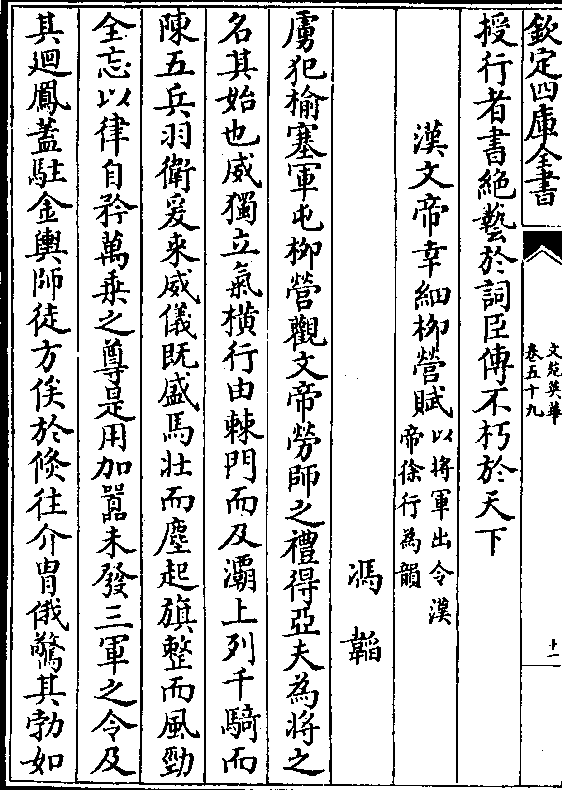 欽定四庫全書
文苑英華
卷五十九
十一
授行者書絶藝於詞臣傳不朽於天下
漢文帝幸細柳營賦
以將軍出令漢
帝徐行為韻
馮韜
虜犯榆塞軍屯柳營觀文帝勞師之禮得亞夫為將之
名其始也威獨立氣橫行由棘門而及灞上列千騎而
陳五兵羽衛爰來威儀既盛馬壯而塵起旗整而風勁
全忘以律自矜萬乗之尊是用加嚣未發三軍之令及
其迴鳳蓋駐金輿師徒方俟於倏往介胄俄驚其勃如